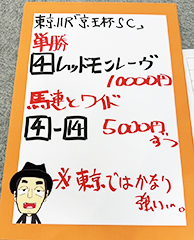 東京11R「京王杯SC」
単勝
4 レッドモンレーヴ
10000円
馬連とワイド
4-14 5000円ずつ
→東京ではかなり
強い…。